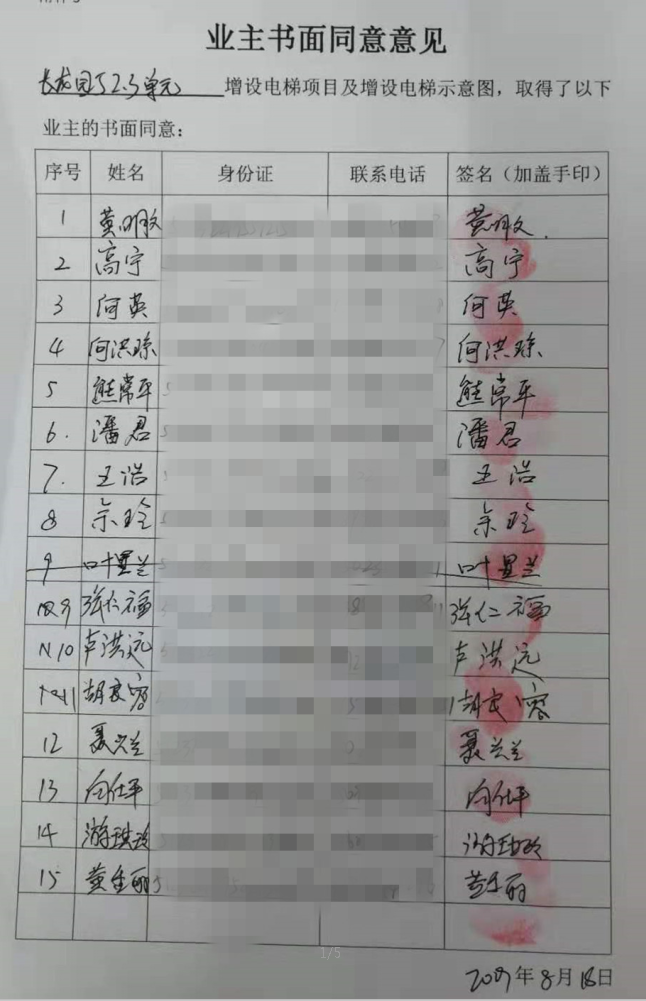 业主书面同意意见
长龙园5 2.3单元 增设电梯项目及增设电梯示意图，取得了以下
业主的书面同意：
序号 姓名 身份证 联系电话 签名（加盖手印）
1 黄明敏
2 高宁 高宁
3 何英 何英
4 何洪琼 何洪琼
5 熊常平 熊常平
6. 潘君 潘君
7. 王浩 王浩
8 余玲 余玲
9 叶显兰 叶显兰
9 张仁福 张仁福
10 卢洪远 卢洪远
11 胡良容 胡良容
12 聂兴兰 聂兴兰
13 向仕平 向仕平
14 游琪玲
15
1/5
2019年8月18日